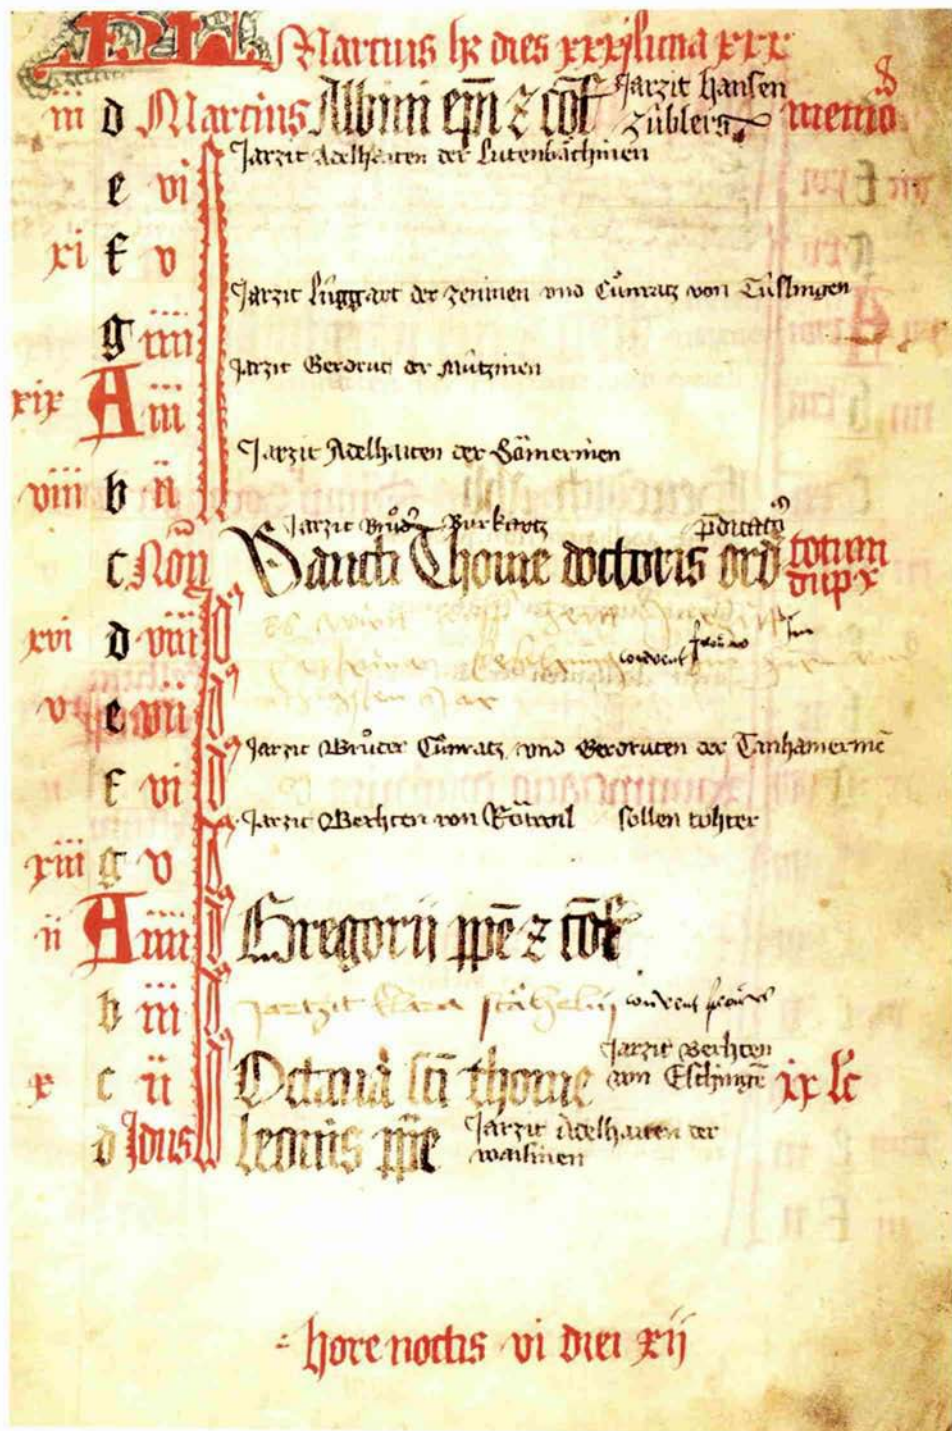 KL Marcius hr dies xxxj luna xxx
iii d Marcius Albini epi z cof Jarzit hansen züblers memo
Jarzit Adelhaiten der Lutenbächinen
e vi
xi f v
Jarzit Lüggart der zeninen vnd Cůnratz von Tüslingen
g iiii
Jarzit Gerdrut der Mützinen
xix A iii
Jarzit Adelhaiten der Sämerinen
viii b ii
Jarzit Brůder Burkartz
c Noñ Sancti Thome doctoris ord p̄dicatoꝝ totum dupx
xvi d viii Id
convent frow
v e vii Id
Jarzit Brůder Cůnratz vnd Gerdruten der Tanhamerinē
f vi Id
Jarzit Berhten von Rötwil sollen tohter
xiii g v Id
ii A iiii Id Gregorii ppe z cof
b iii Id jartzit klara stähelin convent frow
x c ii Id Octaua sci thome Jarzit Berhten von Eschingē ix lc
d Idus leonis ppe Jarzit Adelhaiten der
hore noctis vi diei xij